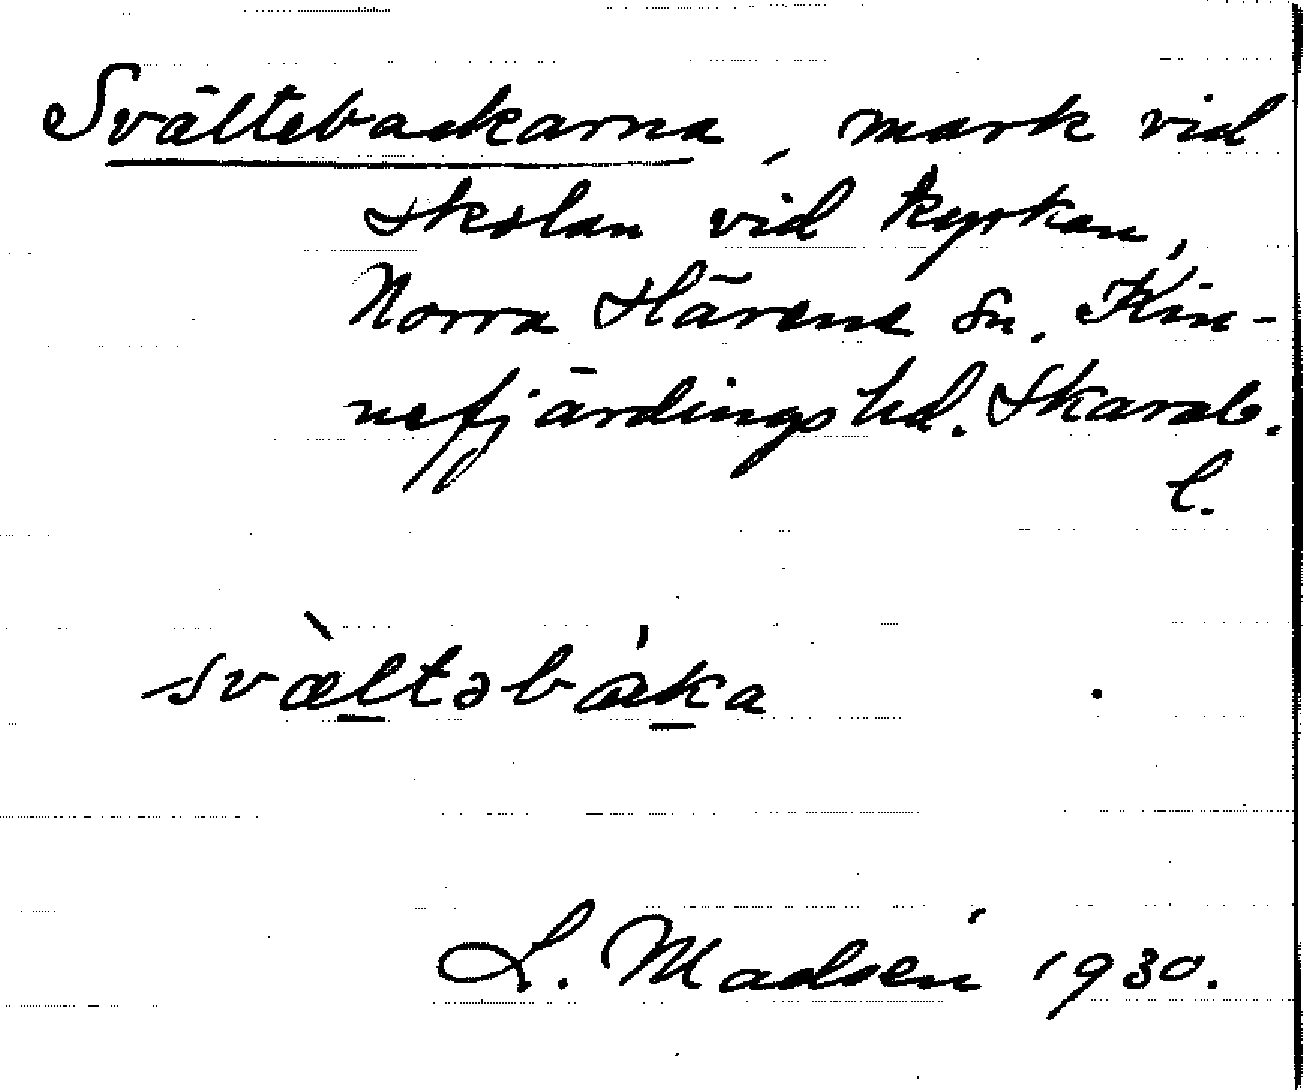 Svältebackarna, mark vid
skolan vid kyrkan,
Norra Härene sn. Kin-
nefjärdings hd. Skarab.
l.
svæ̀ltəbáka
L. Madsén 1930.